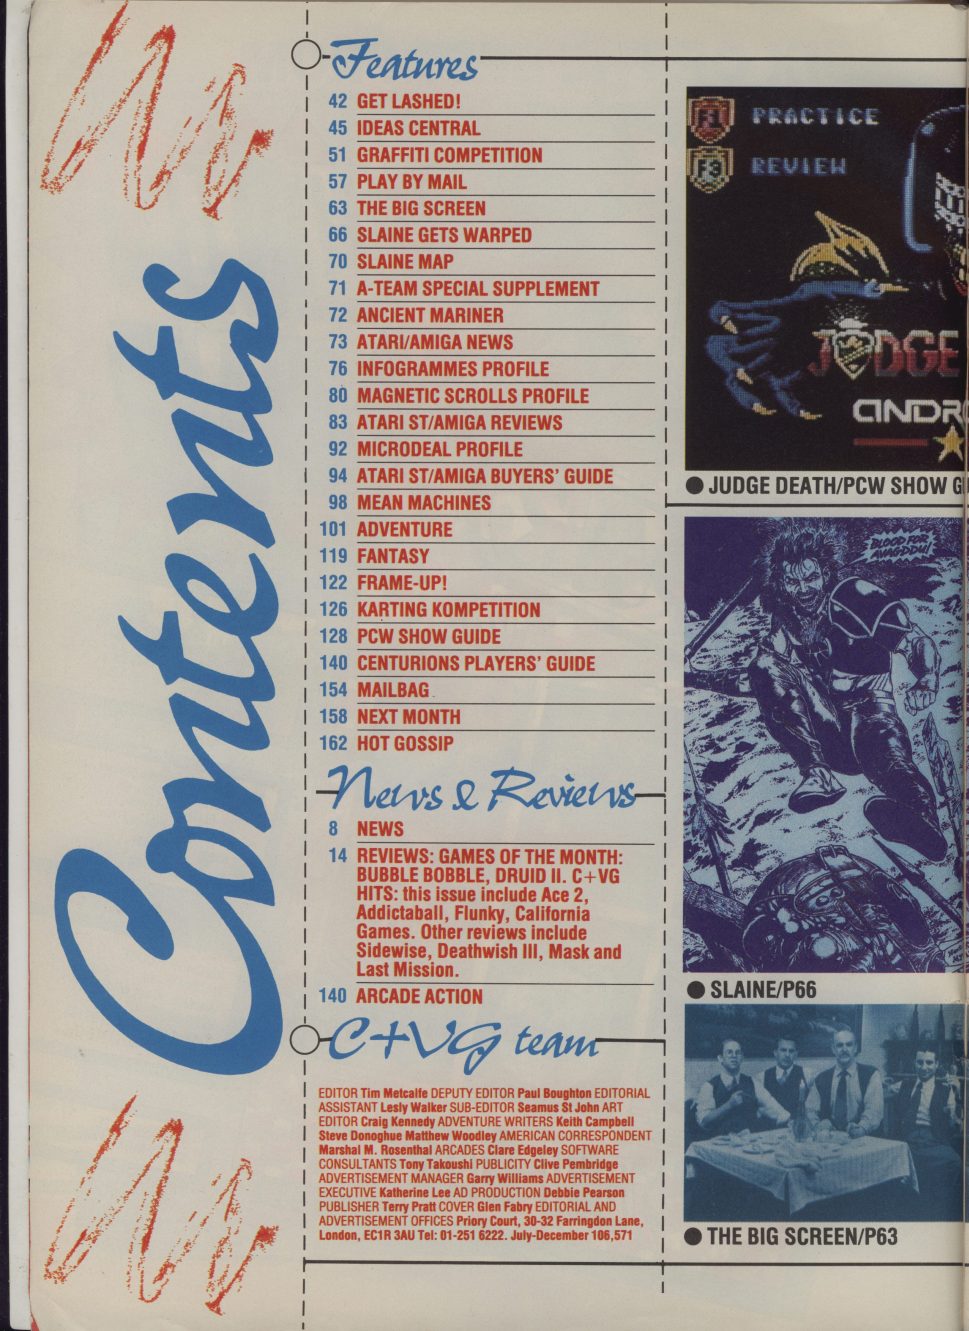 Contents
Features
42 GET LASHED!
45 IDEAS CENTRAL
51 GRAFFITI COMPETITION
57 PLAY BY MAIL
63 THE BIG SCREEN
66 SLAINE GETS WARPED
70 SLAINE MAP
71 A-TEAM SPECIAL SUPPLEMENT
72 ANCIENT MARINER
73 ATARI/AMIGA NEWS
76 INFOGRAMMES PROFILE
80 MAGNETIC SCROLLS PROFILE
83 ATARI ST/AMIGA REVIEWS
92 MICRODEAL PROFILE
94 ATARI ST/AMIGA BUYERS' GUIDE
98 MEAN MACHINES
101 ADVENTURE
119 FANTASY
122 FRAME-UP!
126 KARTING KOMPETITION
128 PCW SHOW GUIDE
140 CENTURIONS PLAYERS' GUIDE
154 MAILBAG
158 NEXT MONTH
162 HOT GOSSIP
News & Reviews
8 NEWS
14 REVIEWS: GAMES OF THE MONTH:
BUBBLE BOBBLE, DRUID II. C+VG
HITS: this issue include Ace 2,
Addictaball, Flunky, California
Games. Other reviews include
Sidewise, Deathwish III, Mask and
Last Mission.
140 ARCADE ACTION
C+VG team
EDITOR Tim Metcalfe DEPUTY EDITOR Paul Boughton EDITORIAL
ASSISTANT Lesly Walker SUB-EDITOR Seamus St John ART
EDITOR Craig Kennedy ADVENTURE WRITERS Keith Campbell
Steve Donoghue Matthew Woodley AMERICAN CORRESPONDENT
Marshal M. Rosenthal ARCADES Clare Edgeley SOFTWARE
CONSULTANTS Tony Takoushi PUBLICITY Clive Pembridge
ADVERTISEMENT MANAGER Garry Williams ADVERTISEMENT
EXECUTIVE Katherine Lee AD PRODUCTION Debbie Pearson
PUBLISHER Terry Pratt COVER Glen Fabry EDITORIAL AND
ADVERTISEMENT OFFICES Priory Court, 30-32 Farringdon Lane,
London, EC1R 3AU Tel: 01-251 6222. July-December 106,571
F1 PRACTICE
F3 REVIEW
JUDGE
ANDR
JUDGE DEATH/PCW SHOW G
BLOOD FOR
AVAGDDU!
SLAINE/P66
THE BIG SCREEN/P63